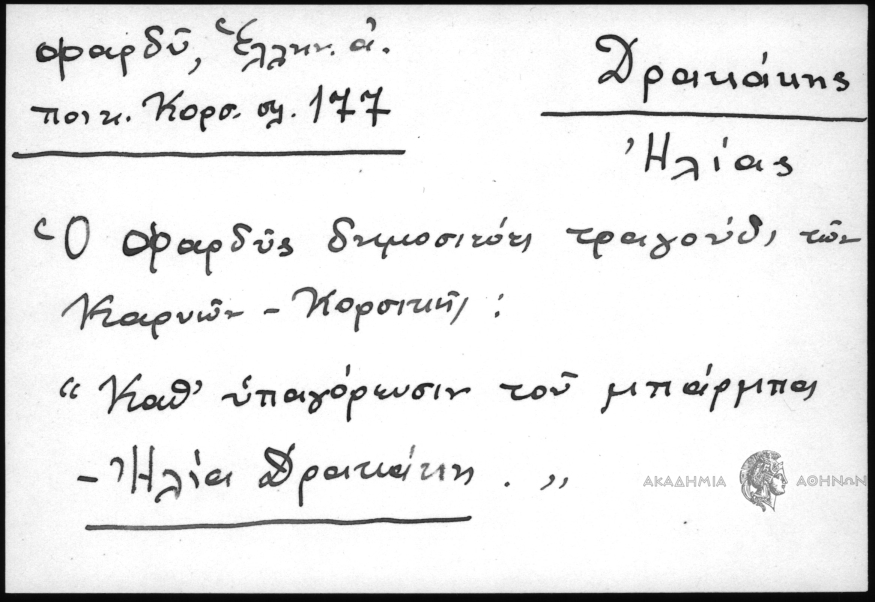 Φαρδῦ, Ἑλλην. ἀ.
ποικ. Κορσ. σ. 177
Δρακάκης
Ἠλίας
Ὁ Φαρδῦς δημοσιεύει τραγούδι τῶν
Καρυῶν - Κορσικῆς :
“ Καθ’ ὑπαγόρευσιν τοῦ μπάρμπα
- Ἠλία Δρακάκη . „
ΑΚΑΔΗΜΙΑ ΑΘΗΝΩΝ